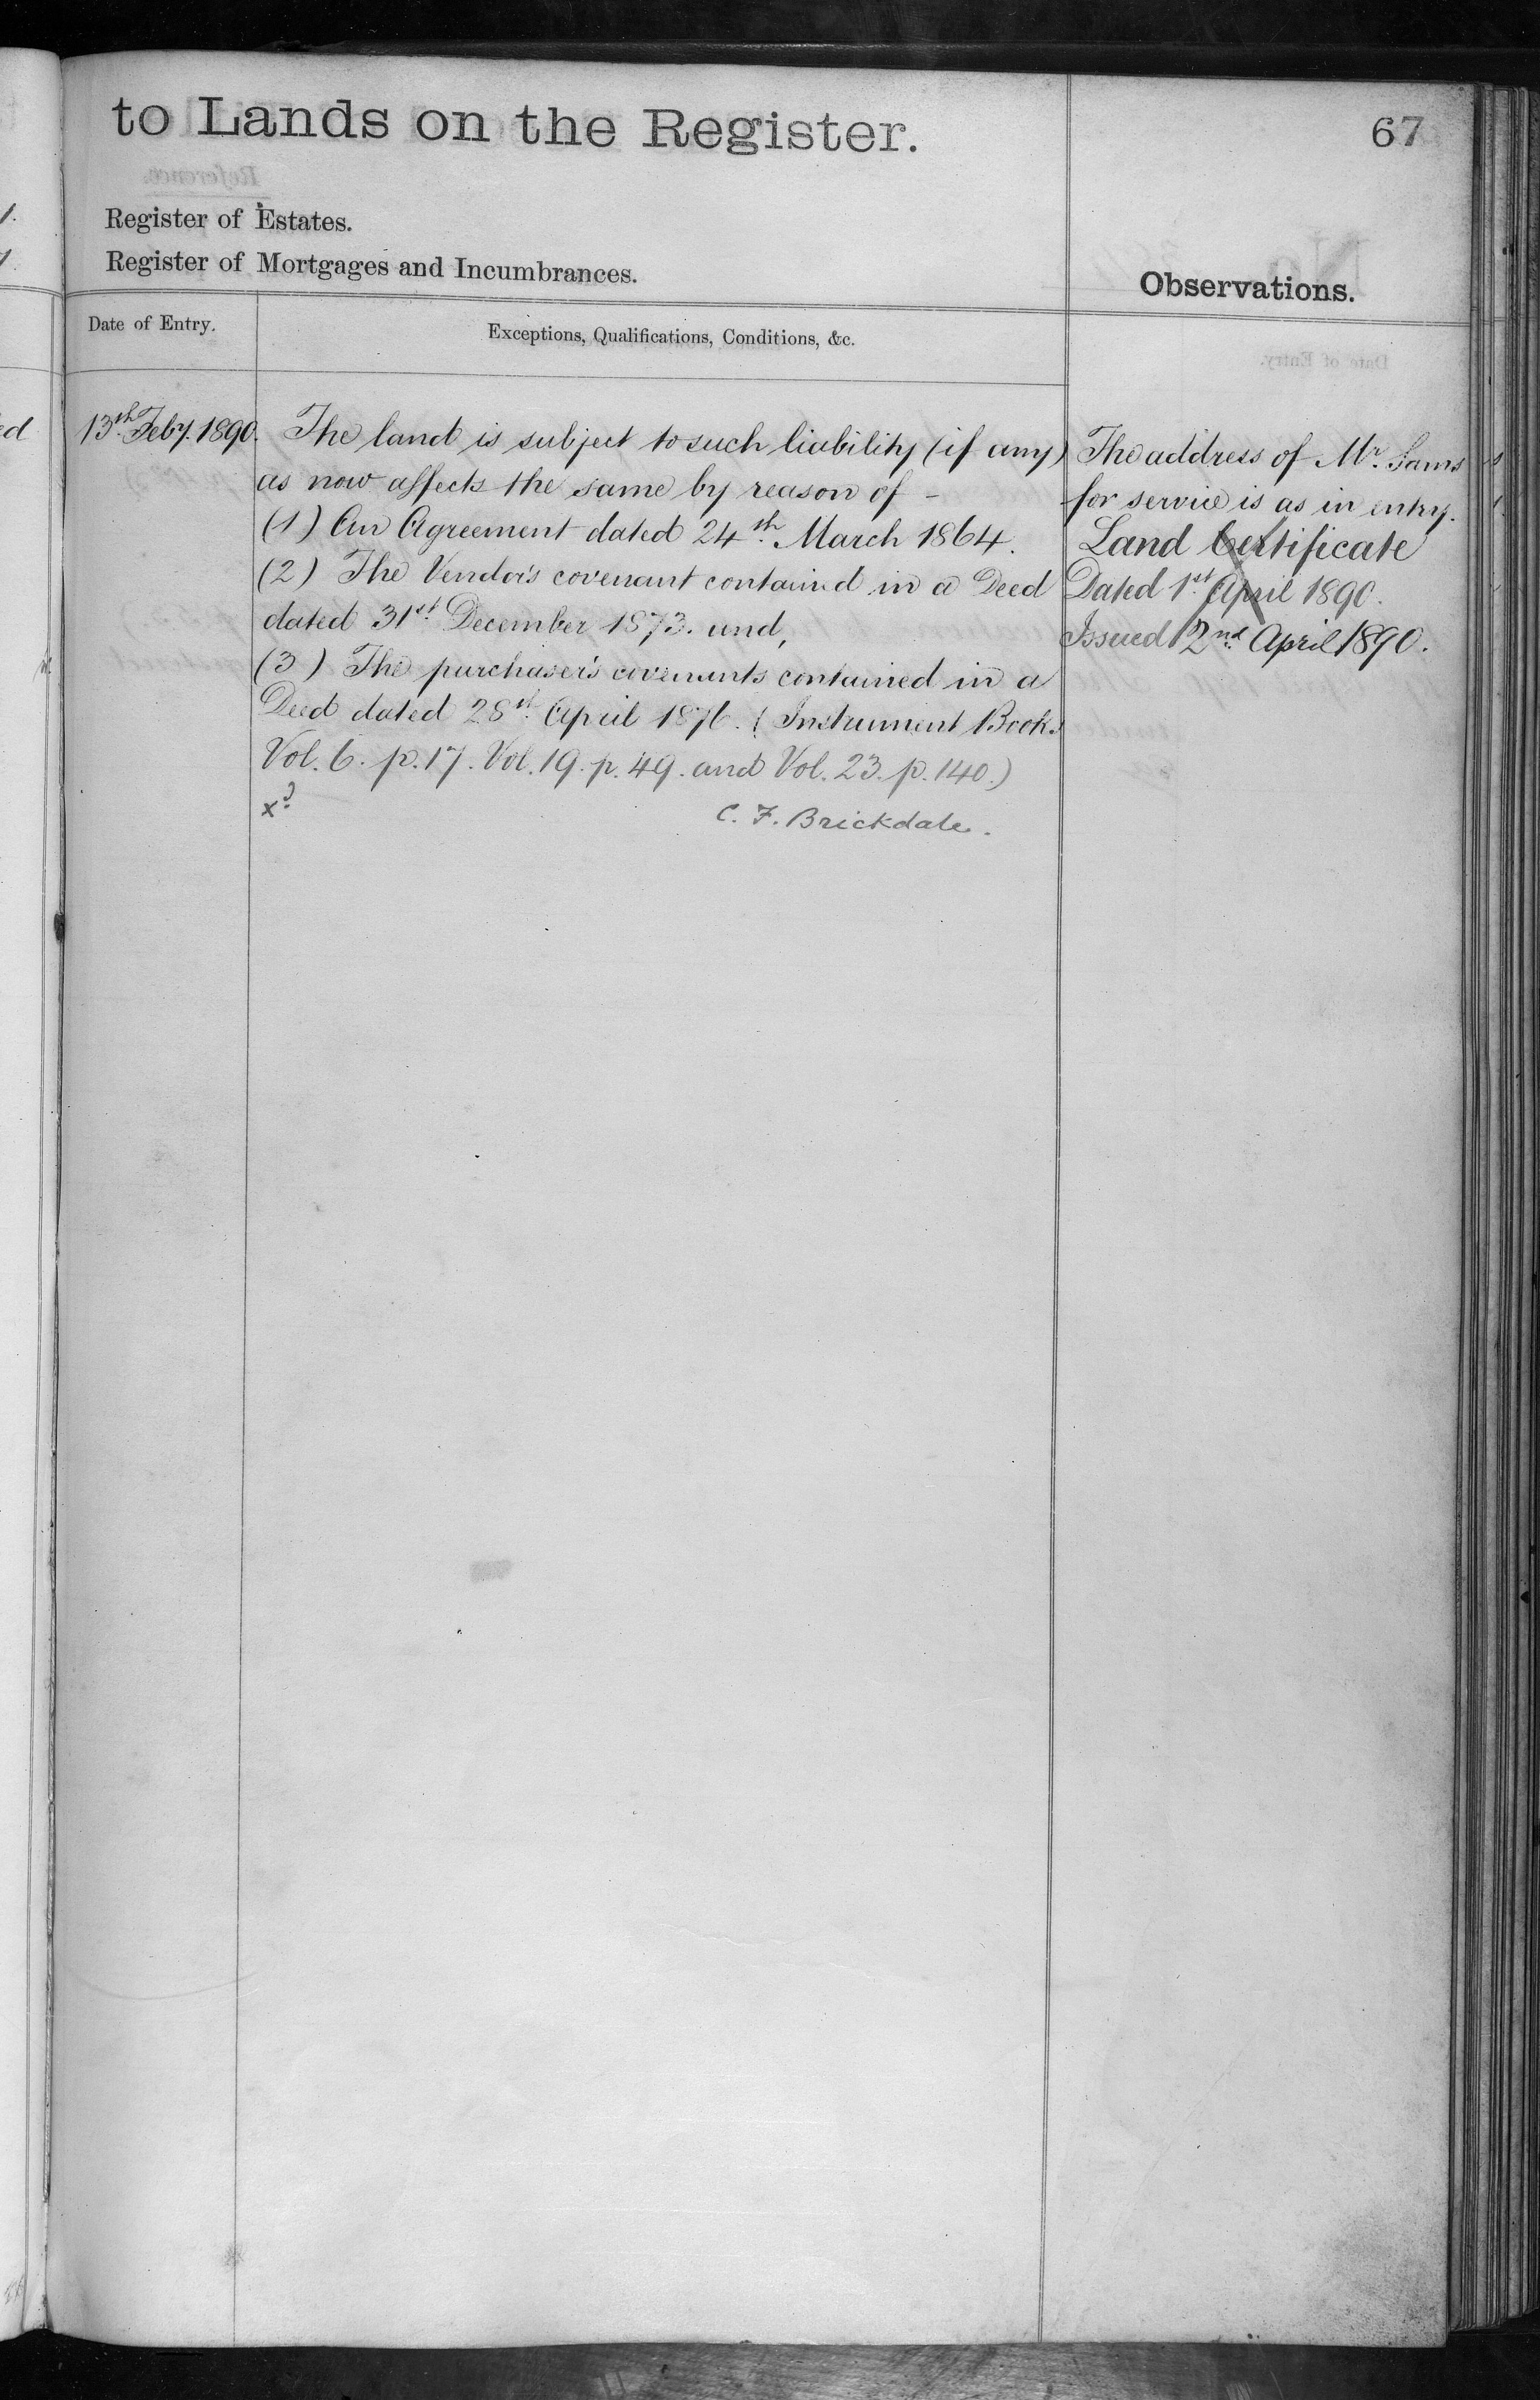 to Lands on the Register.
67
Register of Estates.
Register of Mortgages and Incumbrances.
Observations.
Date of Entry.
Exceptions, Qualifications, Conditions, &c.
13th Feby. 1890.
The land is subject to such liability (if any)
as now affects the same by reason of -
(1) An Agreement dated 24th March 1864.
(2) The Vendor's covenant contained in a Deed
dated 31st December 1873. and,
(3) The purchaser's covenants contained in a
Deed dated 28st April 1876. (Instrument Books
Vol. 6. p. 17. Vol. 19. p. 49. and Vol. 23. p. 140.)
C. F. Brickdale.
The address of Mr. Sams
for service is as in entry.
Land Certificate
Dated 1st April 1890.
Issued 2nd April 1890.